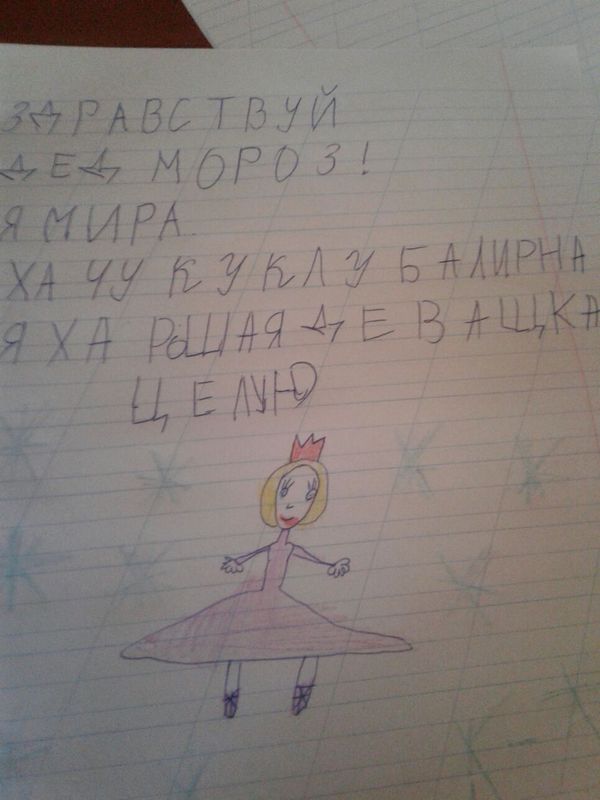 ЗДРАВСТВУЙ
ДЕД МОРОЗ!
Я МИРА.
ХА ЧУ КУКЛУ БАЛИРНА
Я ХА РОШАЯ ДЕВАЩКА
ЦЕЛУЮ